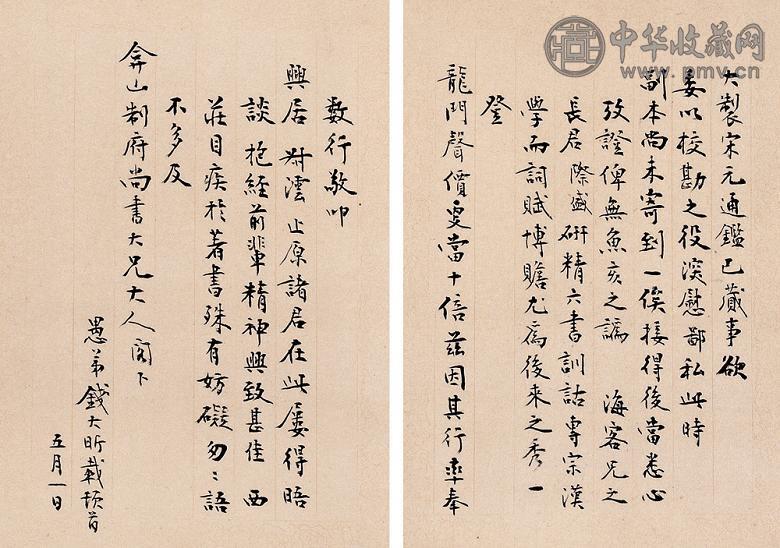 中华收藏网
www.pmv.cn
大製宋元通鑑已蕆事欲
委以校勘之役深慰鄙私此時
副本尚未寄到一俟接得後當悉心
攷證俾無魚亥之譌 海客兄之
長君際盛研精六書訓詁專宗漢
學而詞賦博贍尤為後來之秀一
登
龍門聲價更當十倍茲因其行率奉
數行敬叩
興居 對澐止原諸君在此屢得晤
談 抱經前輩精神興致甚佳 西
莊目疾於著書殊有妨礙匆〻語
不多及
弇山制府尚書大兄大人閣下
愚弟錢大昕載頓首
五月一日